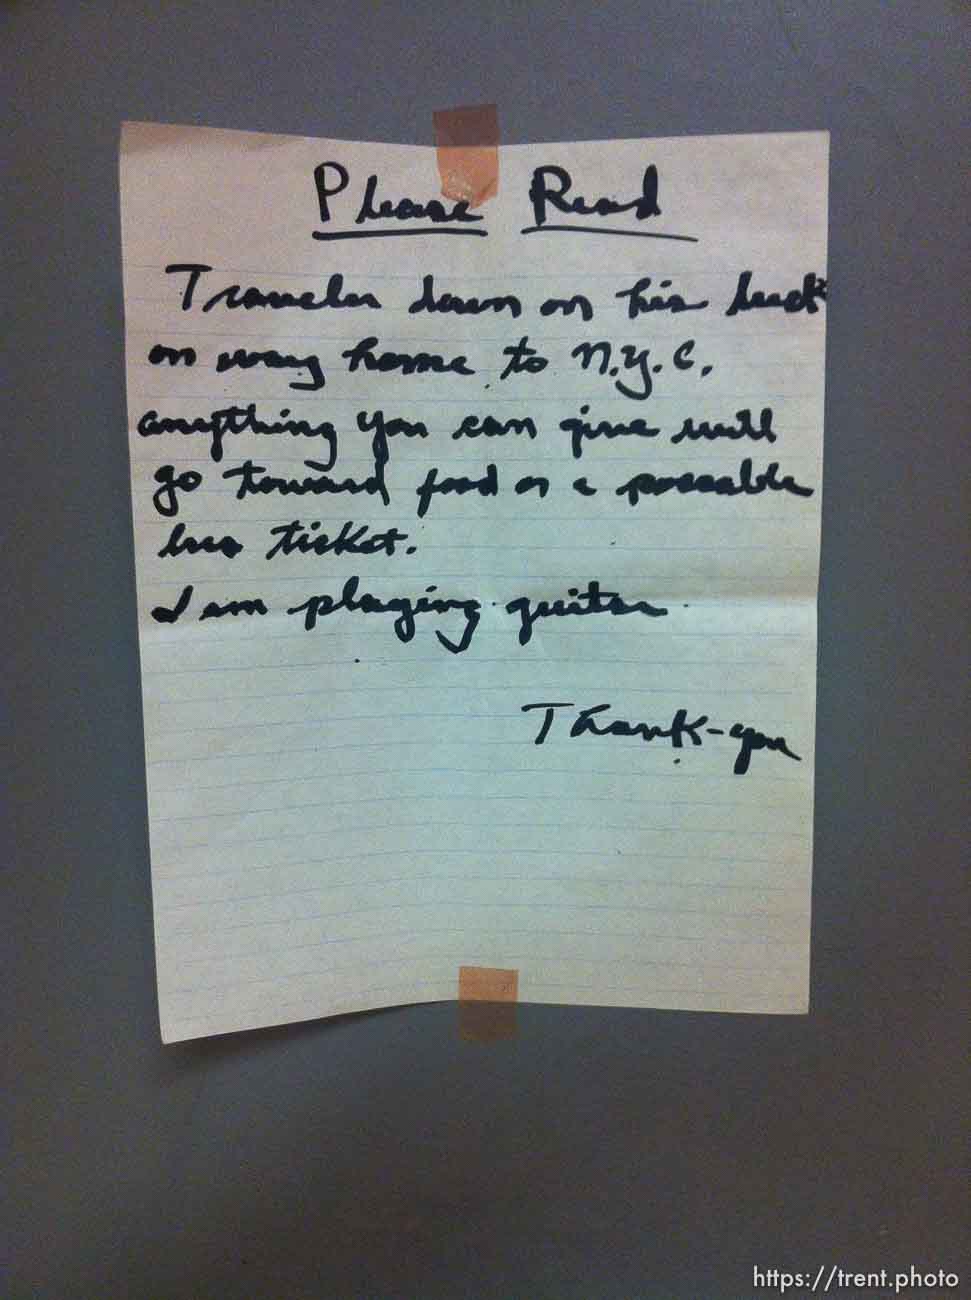 Please Read
Traveler down on his luck
on way home to N.Y.C.
anything you can give will
go toward food or a possable
bus ticket.
I am playing guitar
Thank-you
https://trent.photo